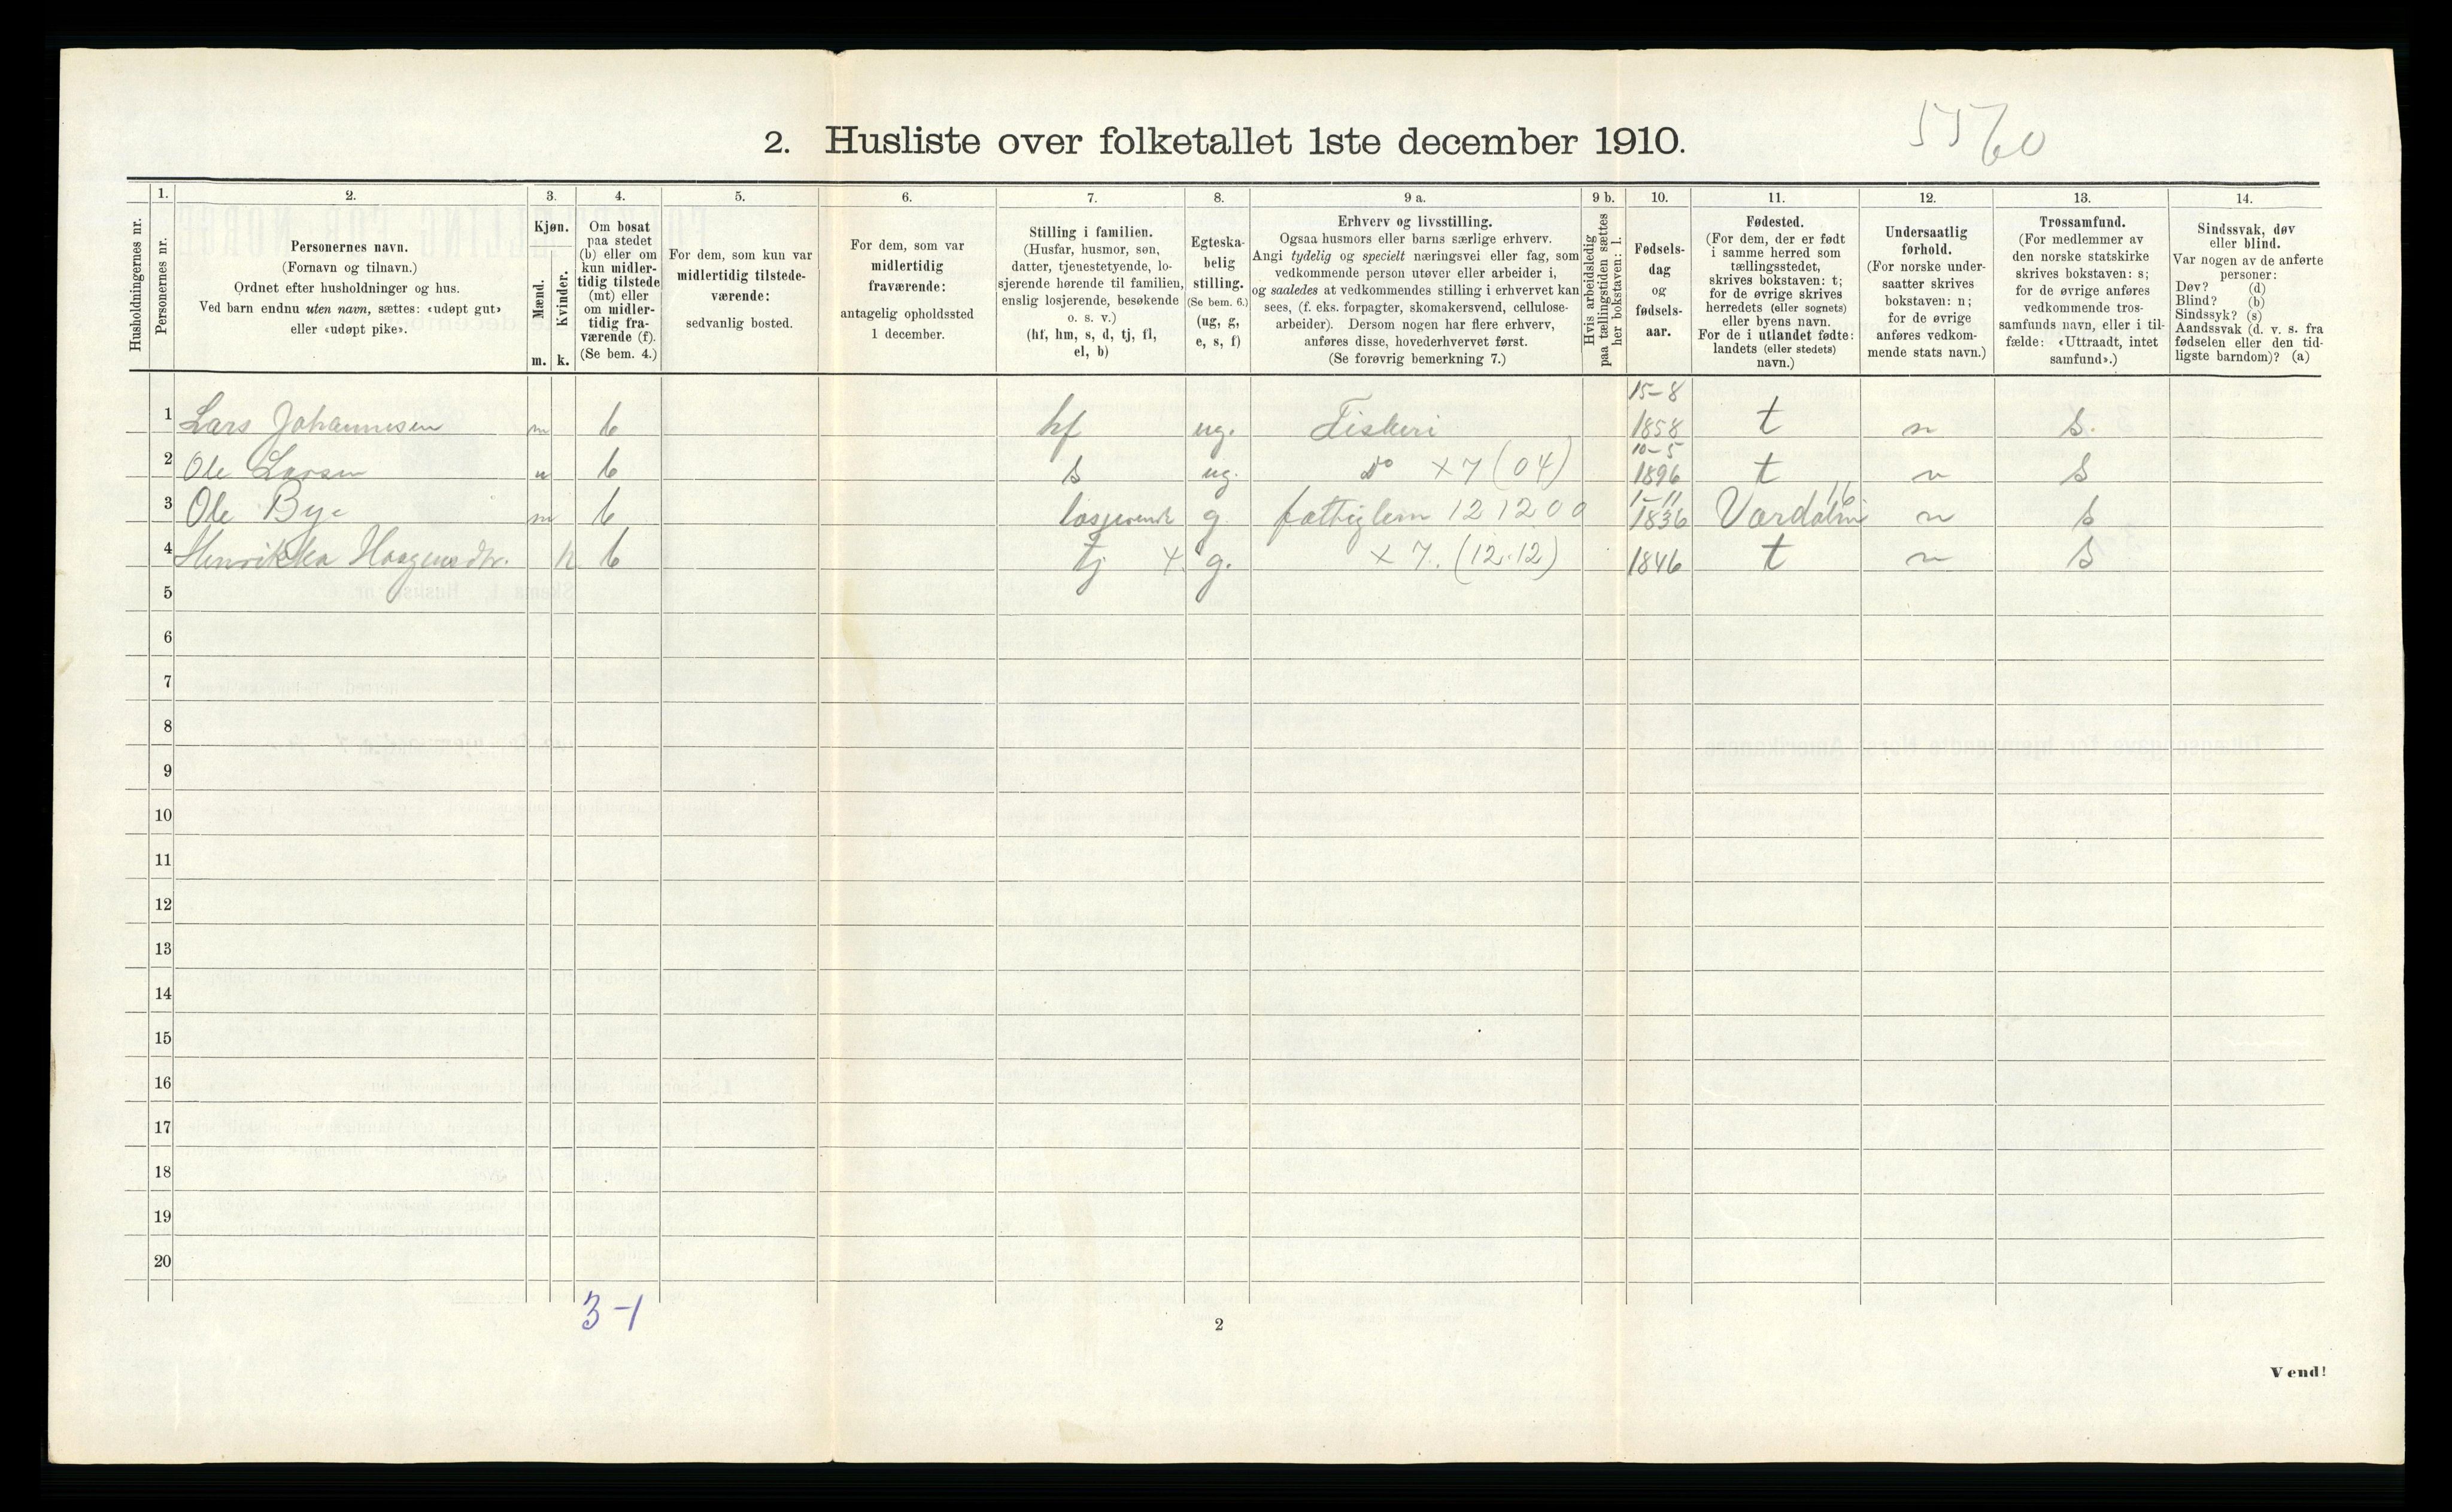 5560
2. Husliste over folketallet 1ste december 1910.
Husholdningernes nr.
1.
Personernes nr.
2.
Personernes navn.
(Fornavn og tilnavn.)
Ordnet efter husholdninger og hus.
Ved barn endnu uten navn, sættes: «udøpt gut»
eller «udøpt pike».
3.
Kjøn.
Mænd.
Kvinder.
m. k.
4.
Om bosat
paa stedet
(b) eller om
kun midler-
tidig tilstede
(mt) eller
om midler-
tidig fra-
værende (f).
(Se bem. 4.)
5.
For dem, som kun var
midlertidig tilstede-
værende:
sedvanlig bosted.
6.
For dem, som var
midlertidig
fraværende:
antagelig opholdssted
1 december.
7.
Stilling i familien.
(Husfar, husmor, søn,
datter, tjenestetyende, lo-
sjerende hørende til familien,
enslig losjerende, besøkende
o. s. v.)
(hf, hm, s, d, tj, fl,
el, b)
8.
Egteska-
belig
stilling.
(Se bem. 6.)
(ug, g,
e, s, f)
9 a.
Erhverv og livsstilling.
Ogsaa husmors eller barns særlige erhverv.
Angi tydelig og specielt næringsvei eller fag, som
vedkommende person utøver eller arbeider i,
og saaledes at vedkommendes stilling i erhvervet kan
sees, (f. eks. forpagter, skomakersvend, cellulose-
arbeider). Dersom nogen har flere erhverv,
anføres disse, hovederhvervet først.
(Se forøvrig bemerkning 7.)
9 b.
Hvis arbeidsledig
paa tællingstiden sættes
her bokstaven: l.
10.
Fødsels-
dag
og
fødsels-
aar.
11.
Fødested.
(For dem, der er født
i samme herred som
tællingsstedet,
skrives bokstaven: t;
for de øvrige skrives
herredets (eller sognets)
eller byens navn.
For de i utlandet fødte:
landets (eller stedets)
navn.)
12.
Undersaatlig
forhold.
(For norske under-
saatter skrives
bokstaven: n;
for de øvrige
anføres vedkom-
mende stats navn.)
13.
Trossamfund.
(For medlemmer av
den norske statskirke
skrives bokstaven: s;
for de øvrige anføres
vedkommende tros-
samfunds navn, eller i til-
fælde: «Uttraadt, intet
samfund».)
14.
Sindssvak, døv
eller blind.
Var nogen av de anførte
personer:
Døv? (d)
Blind? (b)
Sindssyk? (s)
Aandssvak (d. v. s. fra
fødselen eller den tid-
ligste barndom)? (a)
15-8
1 Lars Johannesen m b hf ug. Fiskeri 1858 t n s.
10-5
2 Ole Larsen m b s ug. do x7 (04) 1896 t n s
1-11 16
3 Ole Bye m b losjerende g fattiglem 121200 1836 Værdalen n s
4 Henrikka Haagensdtr. k b tj 4. g. x 7. (12.12) 1846 t n s
5
6
7
8
9
10
11
12
13
14
15
16
17
18
19
20
3-1
2
Vend!